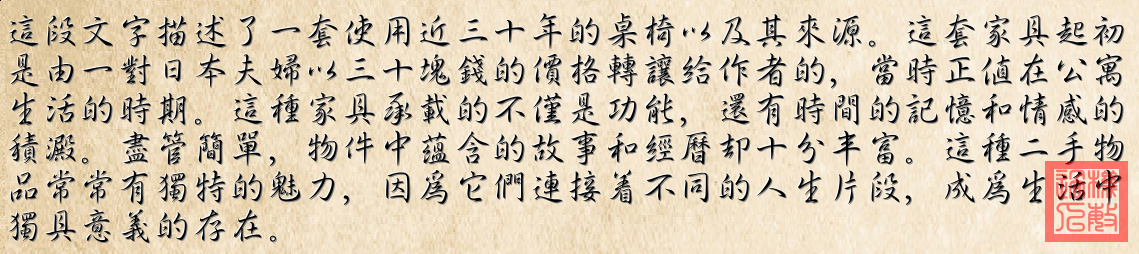 這段文字描述了一套使用近三十年的桌椅以及其來源。這套家具起初
是由一對日本夫婦以三十塊錢的價格轉讓給作者的，當時正值在公寓
生活的時期。這種家具承載的不僅是功能，還有時間的記憶和情感的
積澱。盡管簡單，物件中蘊含的故事和經曆却十分丰富。這種二手物
品常常有獨特的魅力，因爲它們連接着不同的人生片段，成爲生活中
獨具意義的存在。